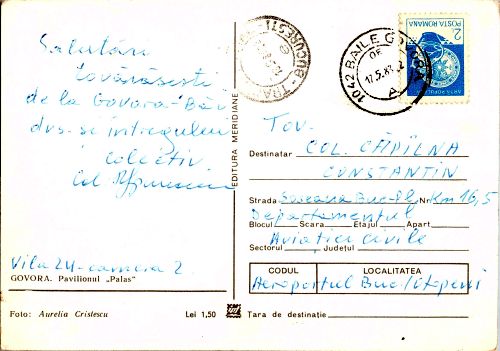 Salutări
tovărăsesti
de la Govora-Băi
dvs. și întregului
colectiv
Col
Vila 24-camera 2
GOVORA. Pavilionul „Palas"
Foto: Aurelia Cristescu
Lei 1,50
EDITURA MERIDIANE
BUCURESTI
1042 BAILE GOVORA
17.5.83
A
POSTA ROMANA
2
Tov.
Destinatar COL. CĂPÎLNA
CONSTANTIN
Strada Soseaua Buc-Pl Nr. Km 16,5
Departamentul
Blocul Scara Etajul Apart
Aviației civile
Sectorul Județul
CODUL LOCALITATEA
Aeroportul Buc/Otopeni
Tara de destinație